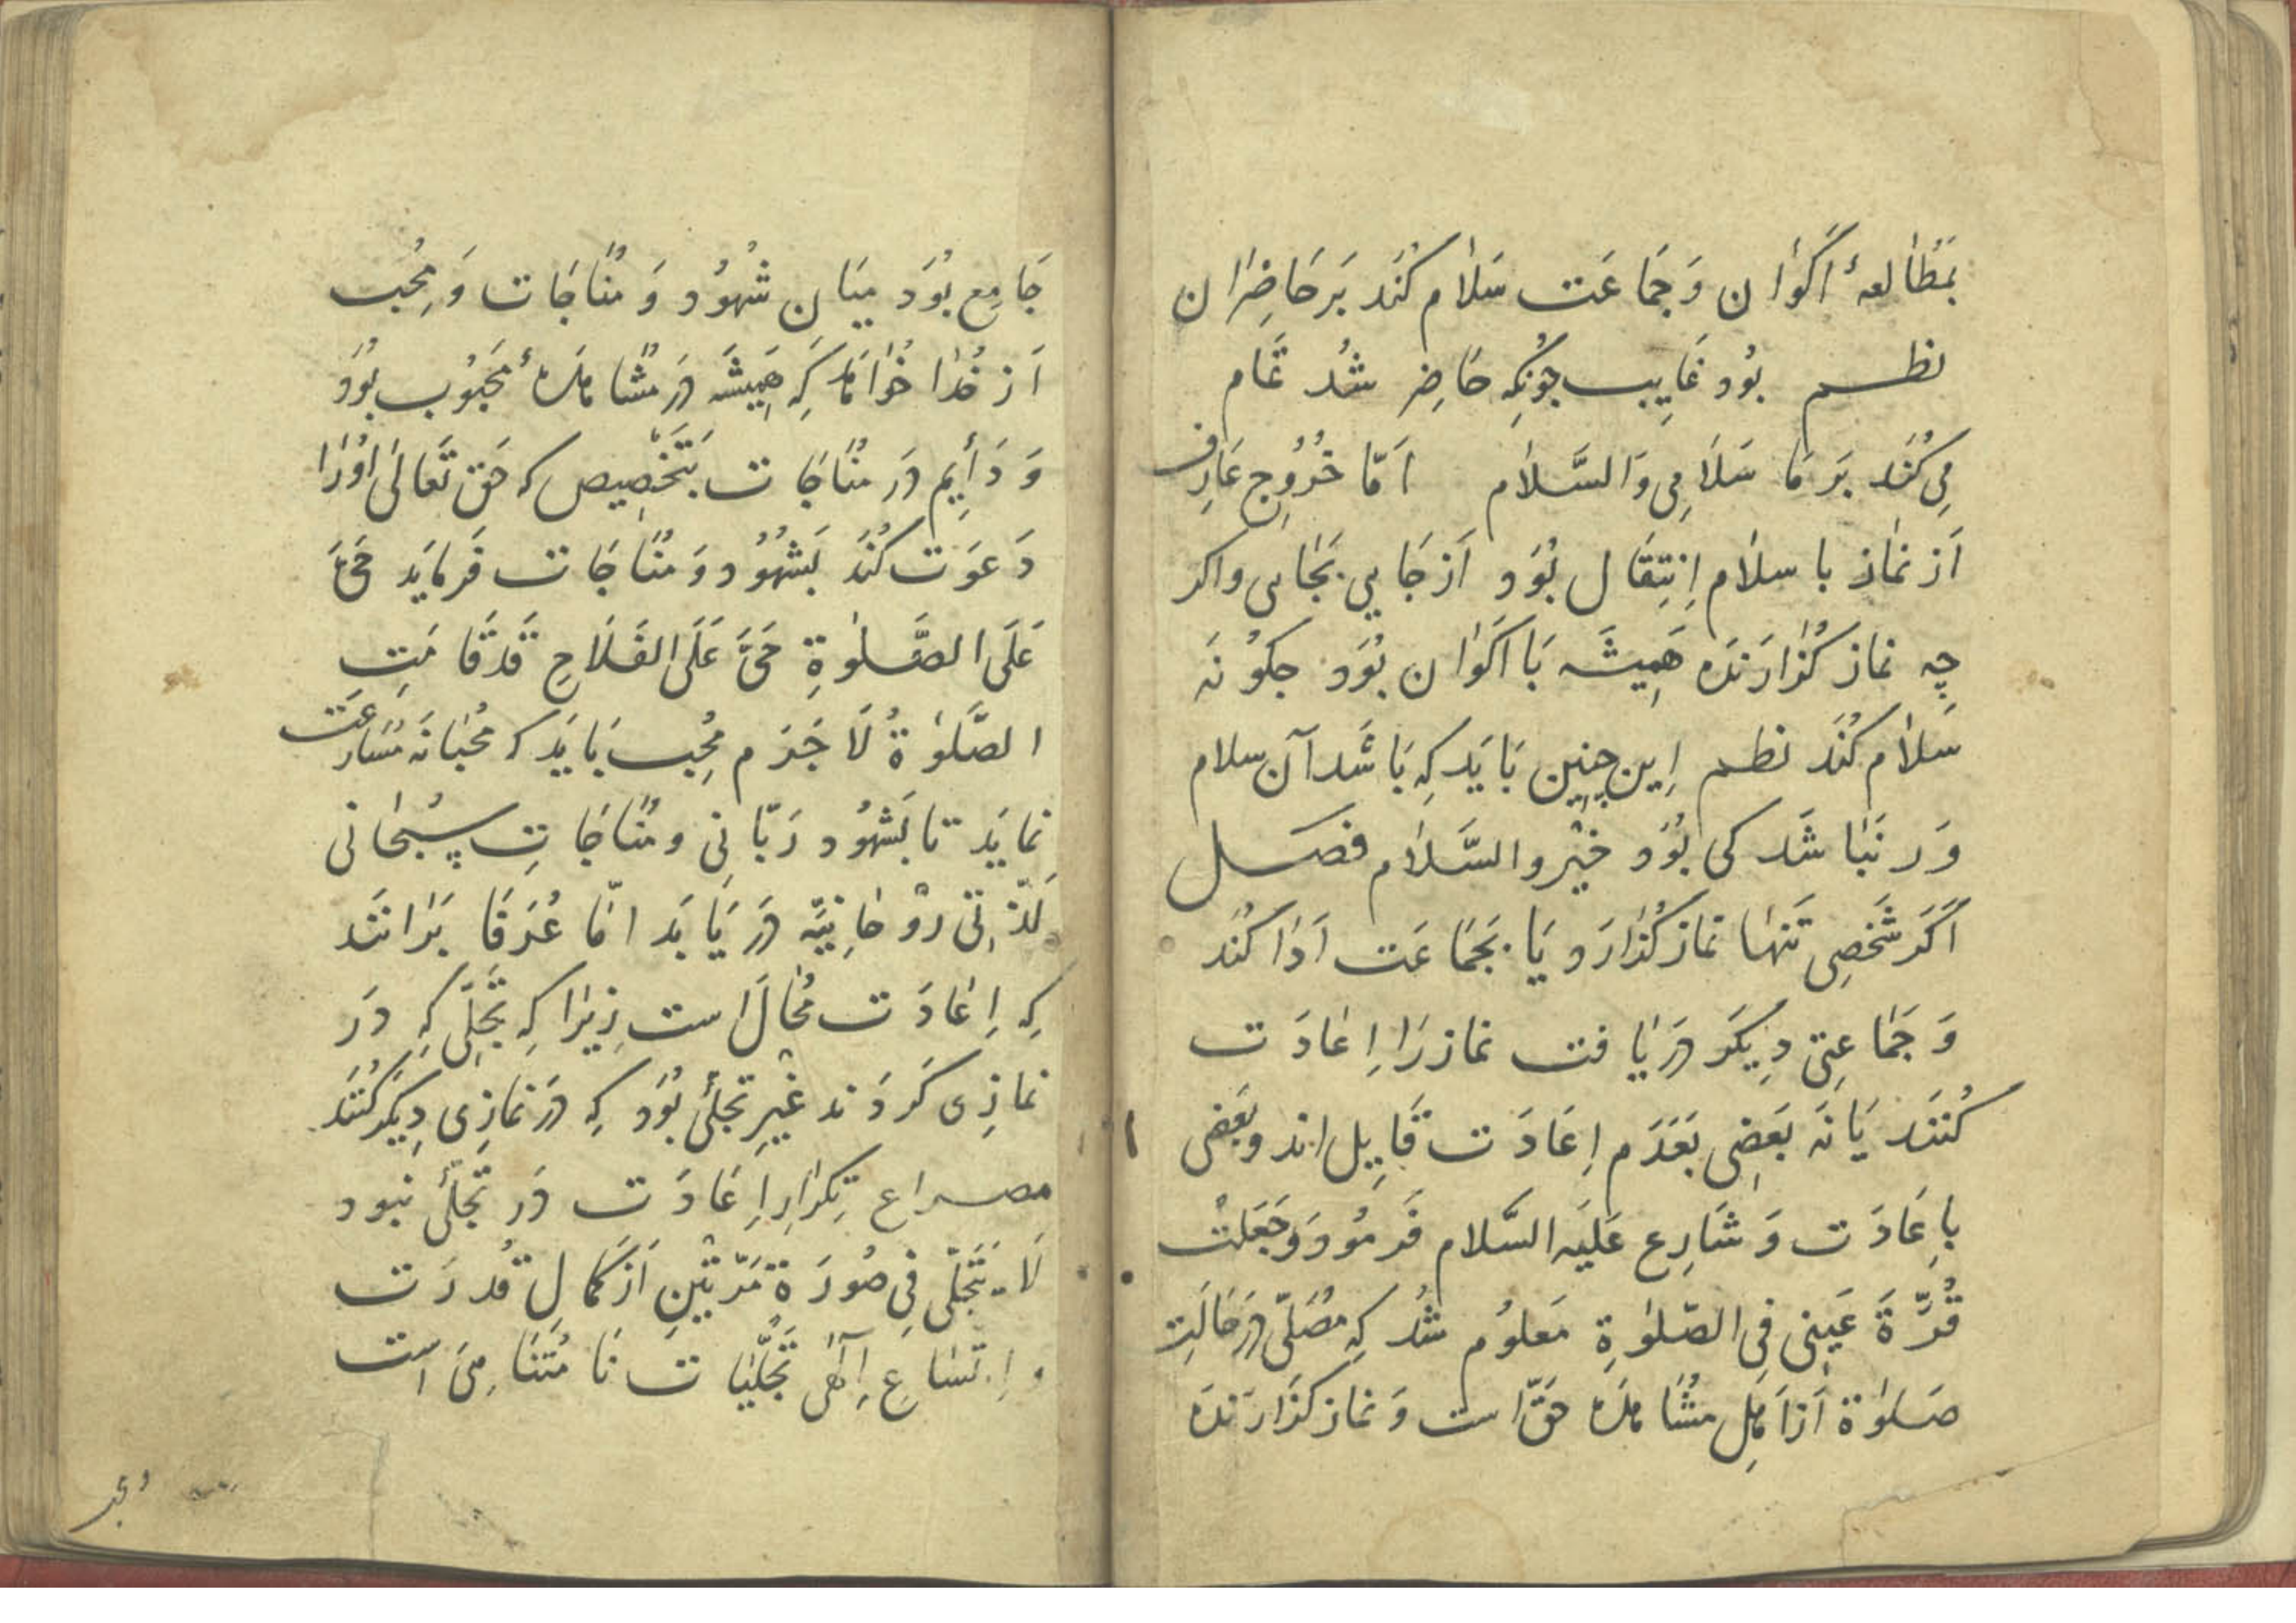 بمَطُالعهٔ اَکوٰان وَجمَاعَت سَلاٰم کنَد بَرحَاضِرٰان
نظم بوُد غَایِب جوُنکِه حَاضِر شُد تمَام
مِی کنُند بَر مَا سَلاَمِی وَالسَّلاٰم اَمّا خُروُجِ عَارِف
اَز نمٰاز با سلاٰم اِنتِقَال بوُد اَز جَایِی بجَایی واکر
چِه نماز کذُارَندَه هَمِیشَه بَا اَکوٰان بوُد جکوُنَه
سَلاٰم کنُد نظم اِین چنِین بَایَد کِه بَاشَد آن سلام
وَر نبَاشَد کی بوُد خیْر والسَّلاٰم فصل
اَکَر شَخصِی تَنهٰا نماز کذُارَد یَا بجَمَاعَت اَدَا کنُد
وَجمَاعتِی دِیکَر دَریٰافت نماز رَا اِعٰادَت
کنُنَد یَا نَه بعَضِی بعَدَم اِعَادَت قَایِل اند وبعَضی
باِعَادَت وَشَارِع عَلَیه السَّلام فَرموُد وَجعَلتْ
قُرّةَ عَینِی فِی الصّلوٰةِ مَعلوُم شُد کِه مُصَلّی دَر حَالَتِ
صَلوٰة اَز اَهلِ مُشَاهدَه حَقّ است وَنماز کذَارَندَه
جَامِع بوُد میَان شُهوُد وَمنُاجَات وَمحُب
اَز خدُا خوُاهَد کَه هَمِیشَه دَر مشُاهدَهٔ مَحبوُب بوُد
وَدَأیِم دَر منُاجَات بتَخصِیص که حَق تَعَالیٰ اوُرَا
دَعوَت کنُد بَشهوُد وَمنُاجَات فَرمایَد حَیَّ
عَلَی الصَّلوٰةِ حَیَّ عَلَی الفَلاَحِ قَد قَامَتِ
الصَّلوٰةُ لاَجَرَم مُحِب بَایَد که محُبانَه مسُارعَت
نمایَد تا بَشهوُد رَبّانِی ومنُاجَاتِ سبُحٰانی
لَذّتِی روُحٰانِیَّه دَریَابَد امّا عُرَفَا بَرانَند
کِه اِعٰادَت محُال است زِیرٰا کِه تَجَلِّی کِه دَر
نمازِی کَردَند غَیْرِ تجلیٔ بوُد کِه دَر نمازِی دِیکَر کنُنَد
مصراع تِکرٰارِ اِعَادَت دَر تجَلّیٔ نبود
لاَ یتَجَلّی فِی صُورَة مَرّتیْنِ اَز کمَالِ قُدرَت
و اِتّسٰاعِ اِلٰهی تَجَلّیٰات نَا مُتنَاهِی است